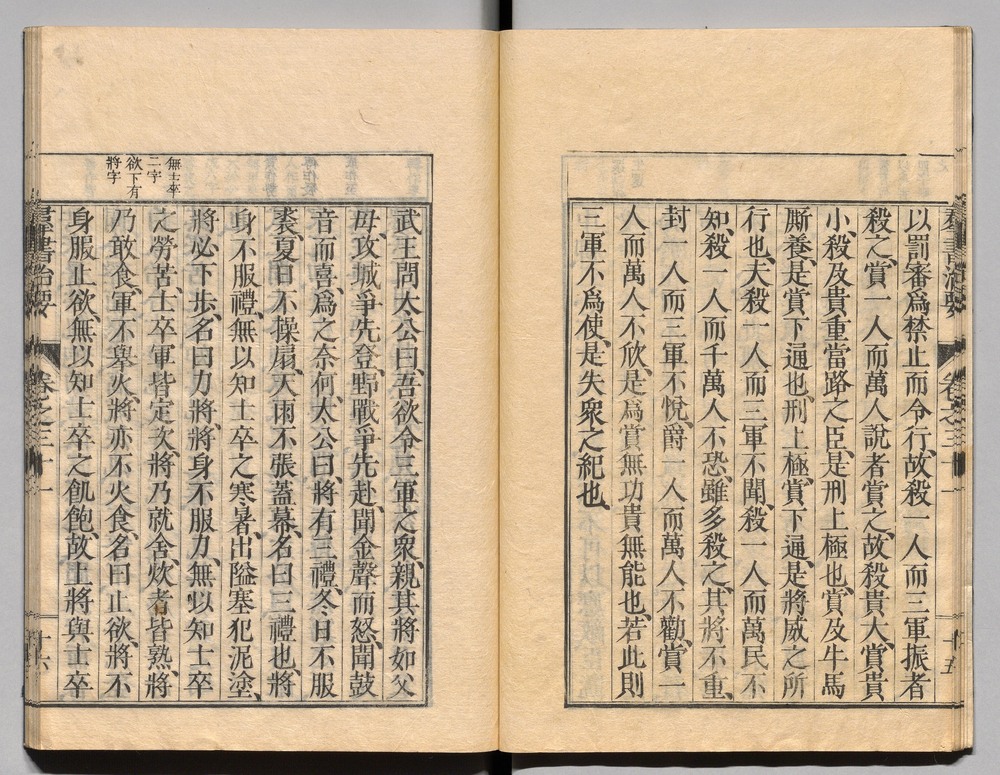 以罰審爲禁止而令行、故殺一人而三軍振者
殺之、賞一人而萬人說者賞之、故殺貴大、賞貴
小、殺及貴重當路之臣、是刑上極也、賞及牛馬
厮養、是賞下通也、刑上極、賞下通、是將威之所
行也、夫殺一人而三軍不聞、殺一人而萬民不
知、殺一人而千萬人不恐、雖多殺之、其將不重、
封一人而三軍不悅、爵一人而萬人不勸、賞一
人而萬人不欣、是爲賞無功貴無能也、若此則
三軍不爲使、是失衆之紀也、
群書治要
卷之三十一
十五
無士卒
二字
欲下有
將字
武王問太公曰、吾欲令三軍之衆、親其將如父
母、攻城爭先登、野戰爭先赴、聞金聲而怒、聞鼓
音而喜、爲之奈何、太公曰、將有三禮、冬日不服
裘、夏日不操扇、天雨不張蓋幕、名曰三禮也、將
身不服禮、無以知士卒之寒暑、出隘塞犯泥塗、
將必下步、名曰力將、將身不服力、無以知士卒
之勞苦、士卒軍皆定次、將乃就舍、炊者皆熟、將
乃敢食、軍不舉火、將亦不火食、名曰止欲、將不
身服止欲、無以知士卒之飢飽、故上將與士卒
群書治要
卷之三十一
十六